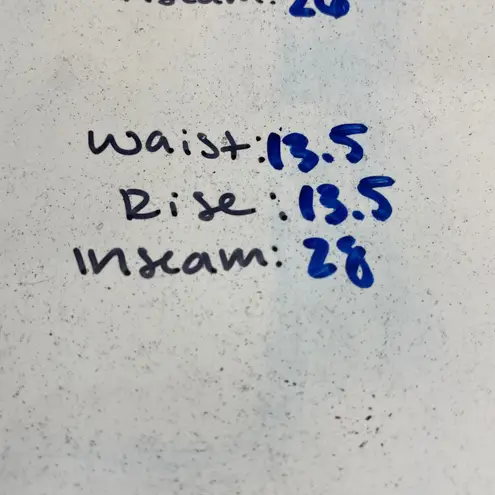 Inseam: 26
Waist: 13.5
Rise: 13.5
Inseam: 28